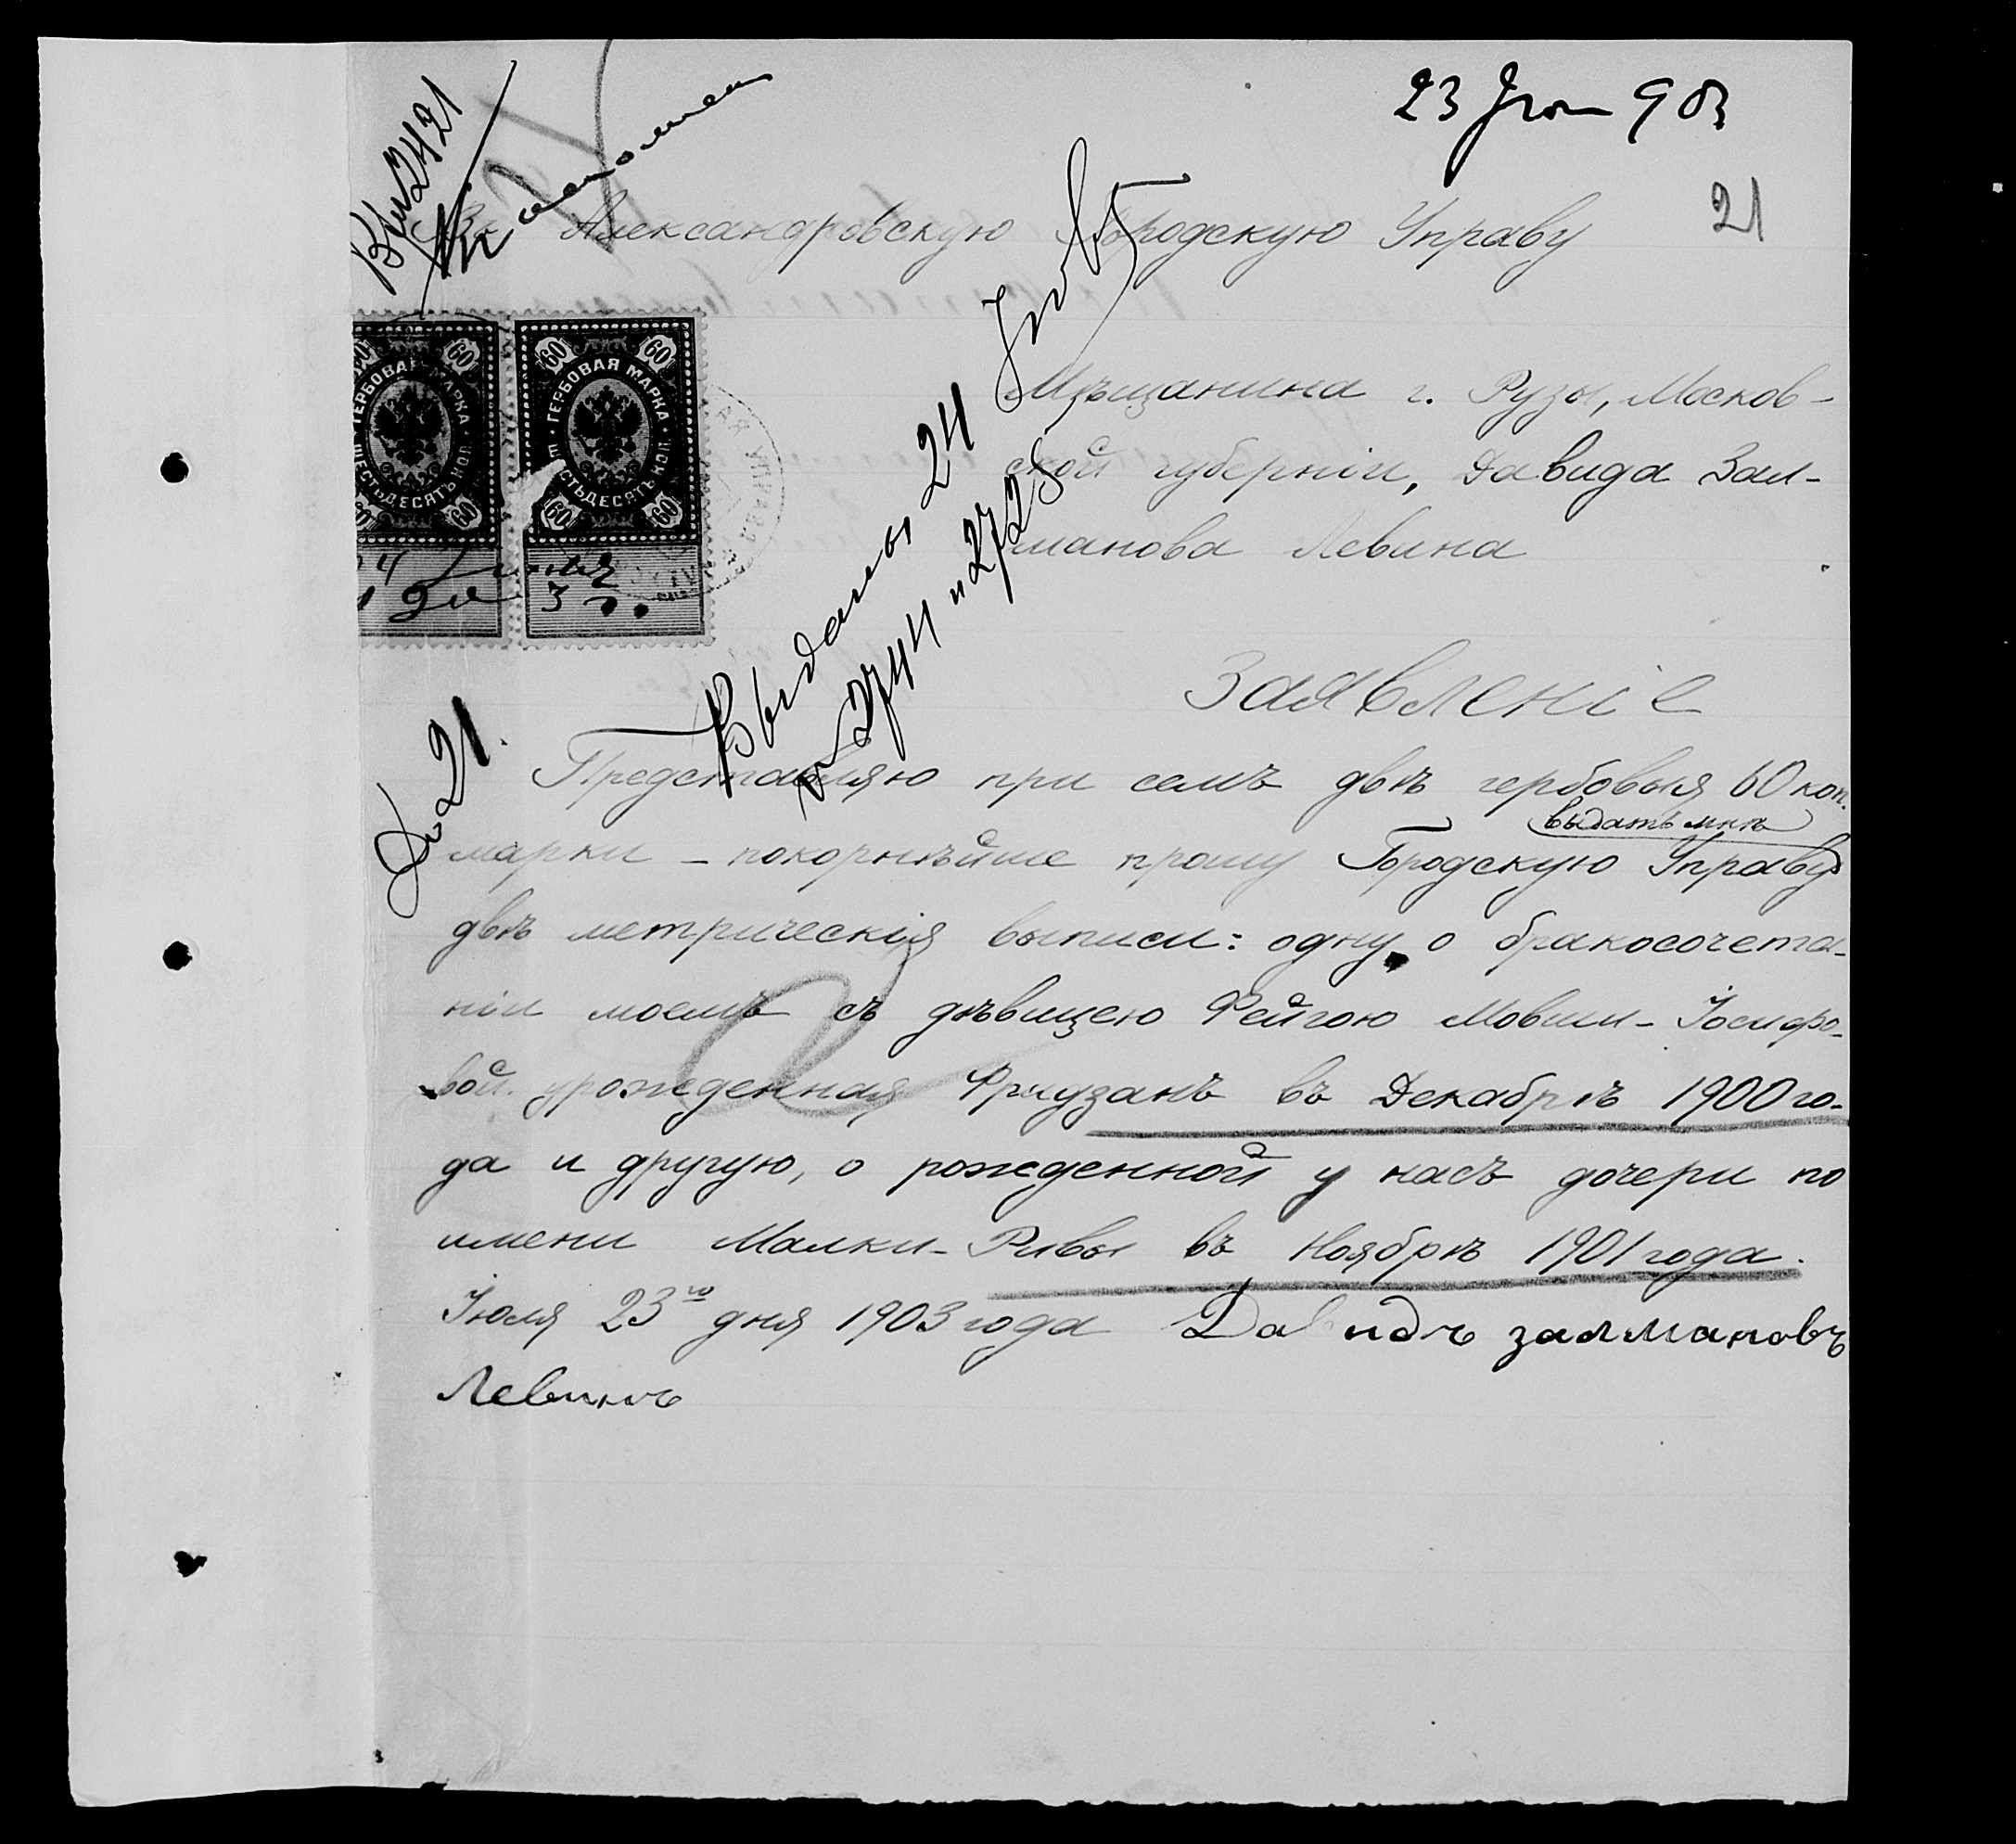 23 Июл 903
21
Вх 2421
Въ Александровскую Городскую Управу
ГЕРБОВАЯ МАРКА
ШЕСТЬДЕСЯТЪ КОП.
60
ГЕРБОВАЯ МАРКА
ШЕСТЬДЕСЯТЪ КОП.
60
Мѣщанина г. Рузы, Москов-
ской губерніи, Давида Зал-
манова Левина
Выданы 24
Заявленіе
21.
Представляю при семъ двѣ гербовыя 60 коп.
марки - покорнѣйше прошу Городскую Управу выдать мнѣ
двѣ метрическія выписи: одну о бракосочета-
ніи моемъ съ дѣвицею Фейгою Мовши-Іосифо-
вой урожденная Фридзанъ въ Декабрѣ 1900 го-
да и другую, о рожденной у насъ дочери по
имени Малки-Ривы въ Ноябрѣ 1901 года.
Іюля 23го дня 1903 года Давидъ залмановъ
Левинъ